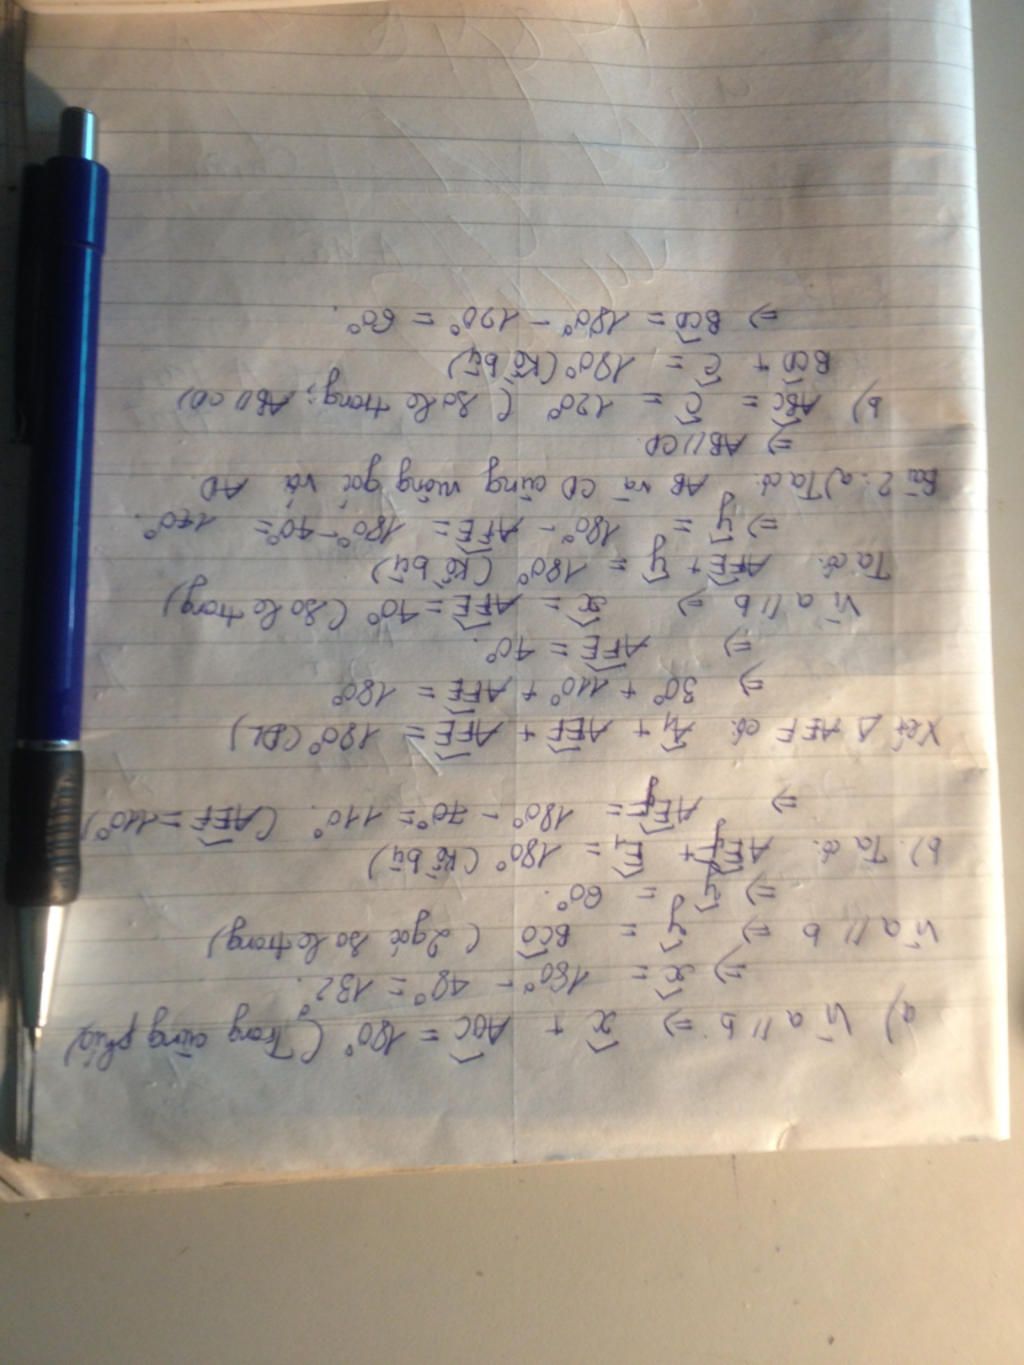 a) Vì a // b ⇒ x̂ + AOC = 180° (Trong cùng phía)
⇒ x̂ = 180° - 48° = 132°.
Vì a // b ⇒ ŷ = BCO (2 góc so le trong)
⇒ ŷ = 60°.
b). Ta có: AEF + Ê₁ = 180° (Kề bù)
⇒ AEF = 180° - 70° = 110°. (AEF = 110°)
Xét Δ AEF có: Â₁ + AEF + AFE = 180° (ĐL)
⇒ 30° + 110° + AFE = 180°
⇒ AFE = 40°.
Vì a // b ⇒ x̂ = AFE = 40° (so le trong)
Ta có: AFE + ŷ = 180° (Kề bù)
⇒ ŷ = 180° - AFE = 180° - 40° = 140°.
Bài 2: a) Ta có: AB và CD cùng vuông góc với AD
⇒ AB // CD
b) ABC = Ĉ = 120° (So le trong; AB // CD)
BCD + Ĉ = 180° (Kề bù)
⇒ BCD = 180° - 120° = 60°.